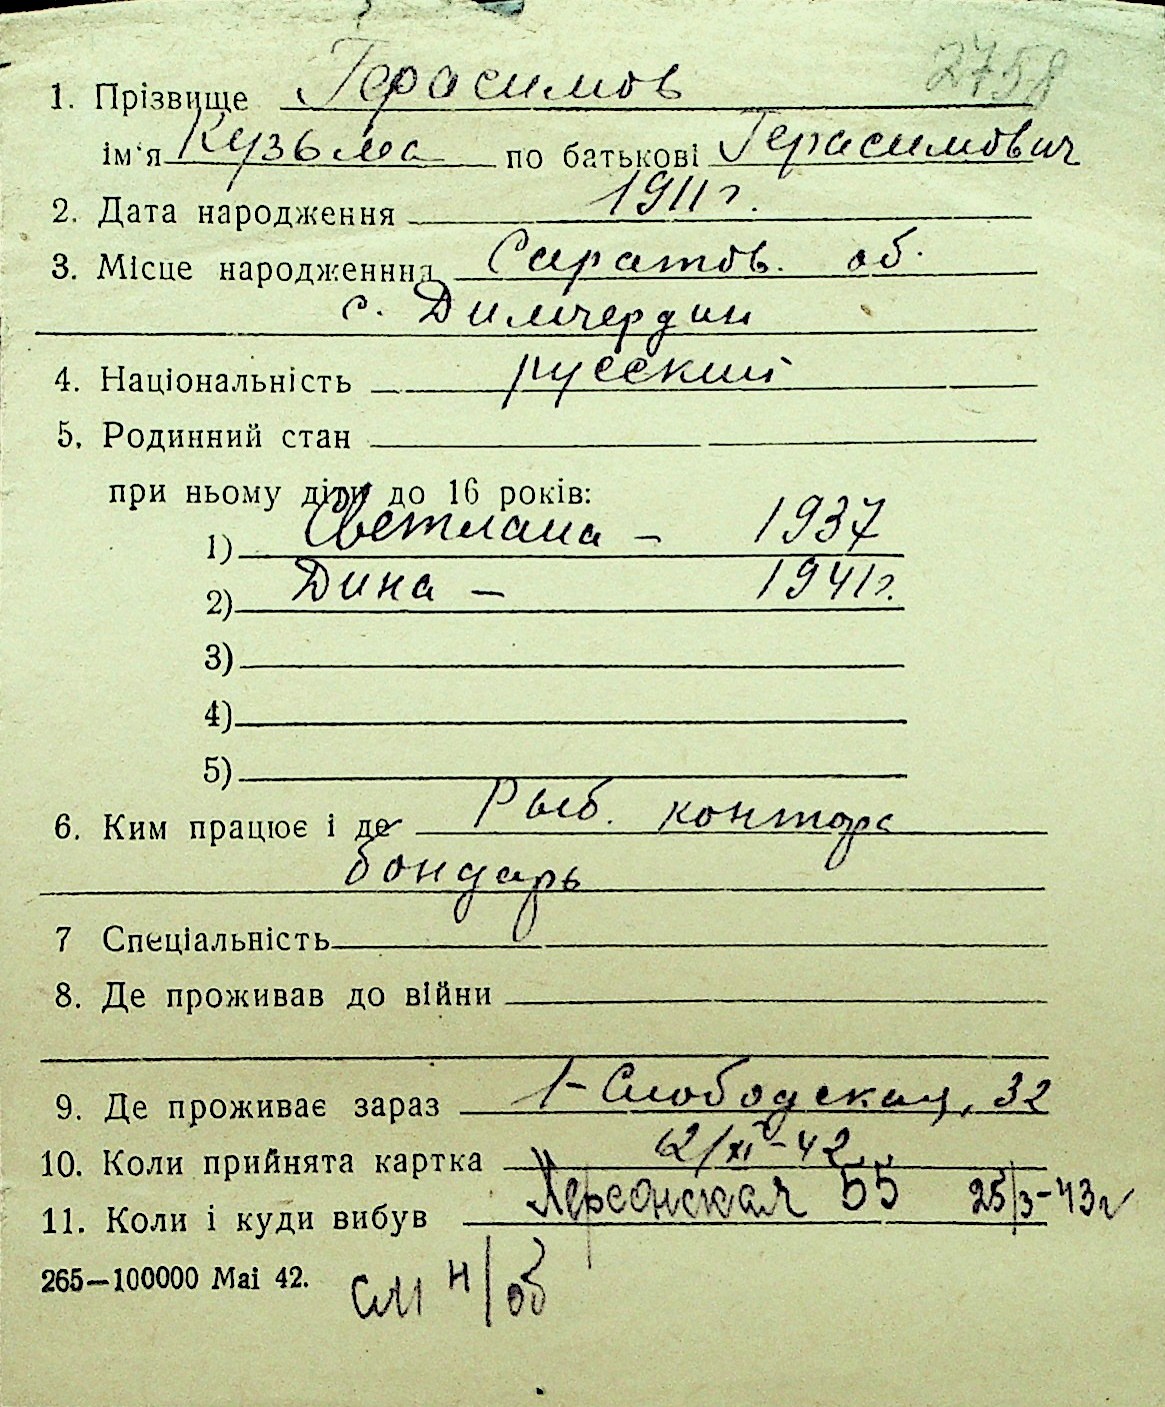 2758
1. Прізвище Герасимов
ім'я Кузьма по батькові Герасимович
2. Дата народження 1911 г.
3. Місце народженння Саратов. об.
с. Димчердин
4. Національність русский
5. Родинний стан
при ньому діти до 16 років:
1) Светлана – 1937
2) Дина – 1941 г.
3)
4)
5)
6. Ким працює і де Рыб. контора
бондарь
7 Спеціальність
8. Де проживав до війни
9. Де проживає зараз 1-Слободская, 32
10. Коли прийнята картка 12/XI-42
11. Коли і куди вибув Херсонская 55 25/3-43 г
265—100000 Mai 42. см н/об